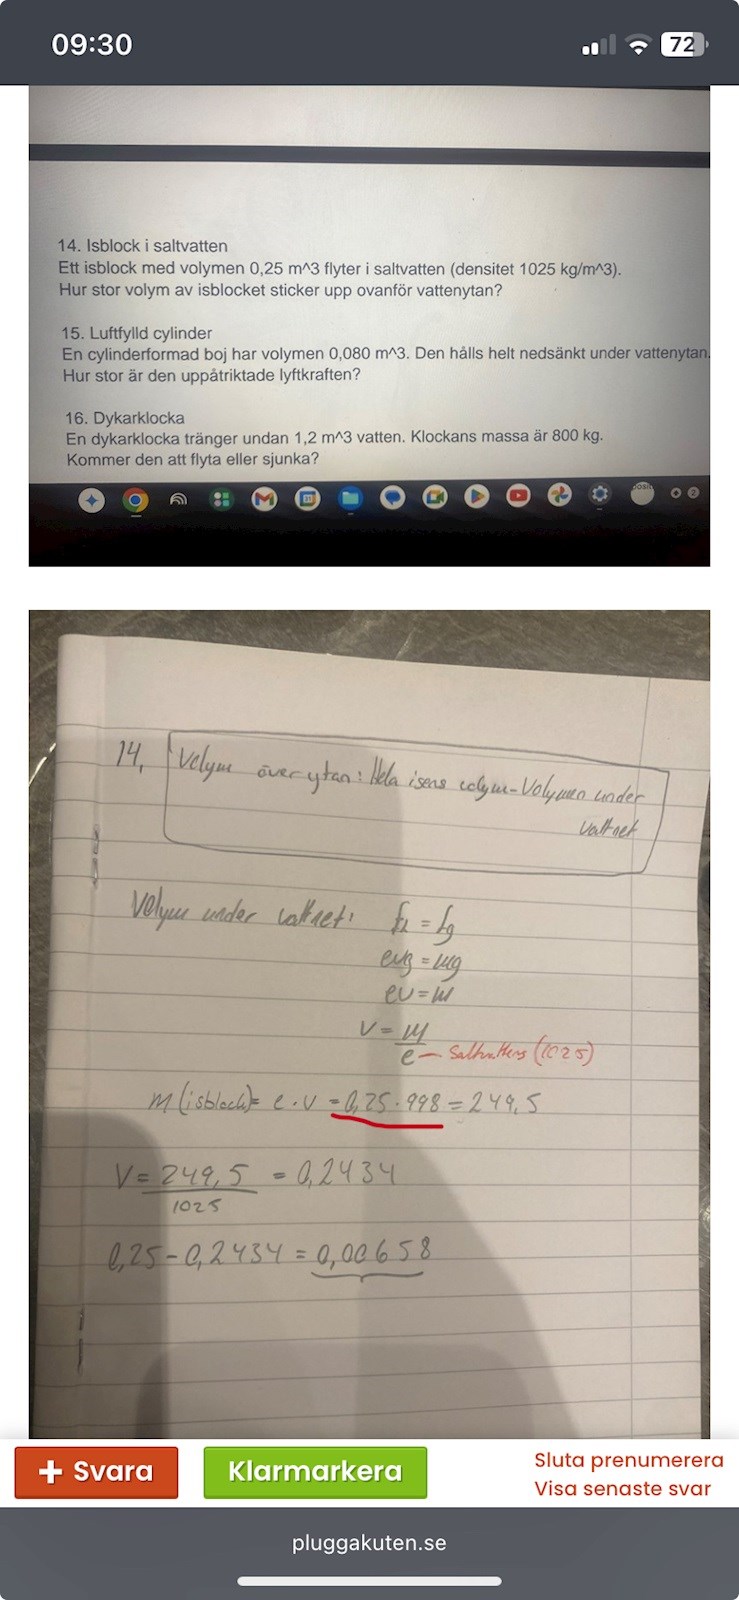 09:30
72
14. Isblock i saltvatten
Ett isblock med volymen 0,25 m^3 flyter i saltvatten (densitet 1025 kg/m^3).
Hur stor volym av isblocket sticker upp ovanför vattenytan?
15. Luftfylld cylinder
En cylinderformad boj har volymen 0,080 m^3. Den hålls helt nedsänkt under vattenytan.
Hur stor är den uppåtriktade lyftkraften?
16. Dykarklocka
En dykarklocka tränger undan 1,2 m^3 vatten. Klockans massa är 800 kg.
Kommer den att flyta eller sjunka?
14, Volym över ytan: Hela isens volym - Volymen under
vattnet
Volym under vattnet: FL = Fg
ρvg = mg
ρv = m
V = m
ρ — Saltvattens (1025)
m (isblock) = ρ · v = 0,25 · 998 = 249,5
V = 249,5 = 0,2434
1025
0,25 - 0,2434 = 0,00658
+ Svara
Klarmarkera
Sluta prenumerera
Visa senaste svar
pluggakuten.se